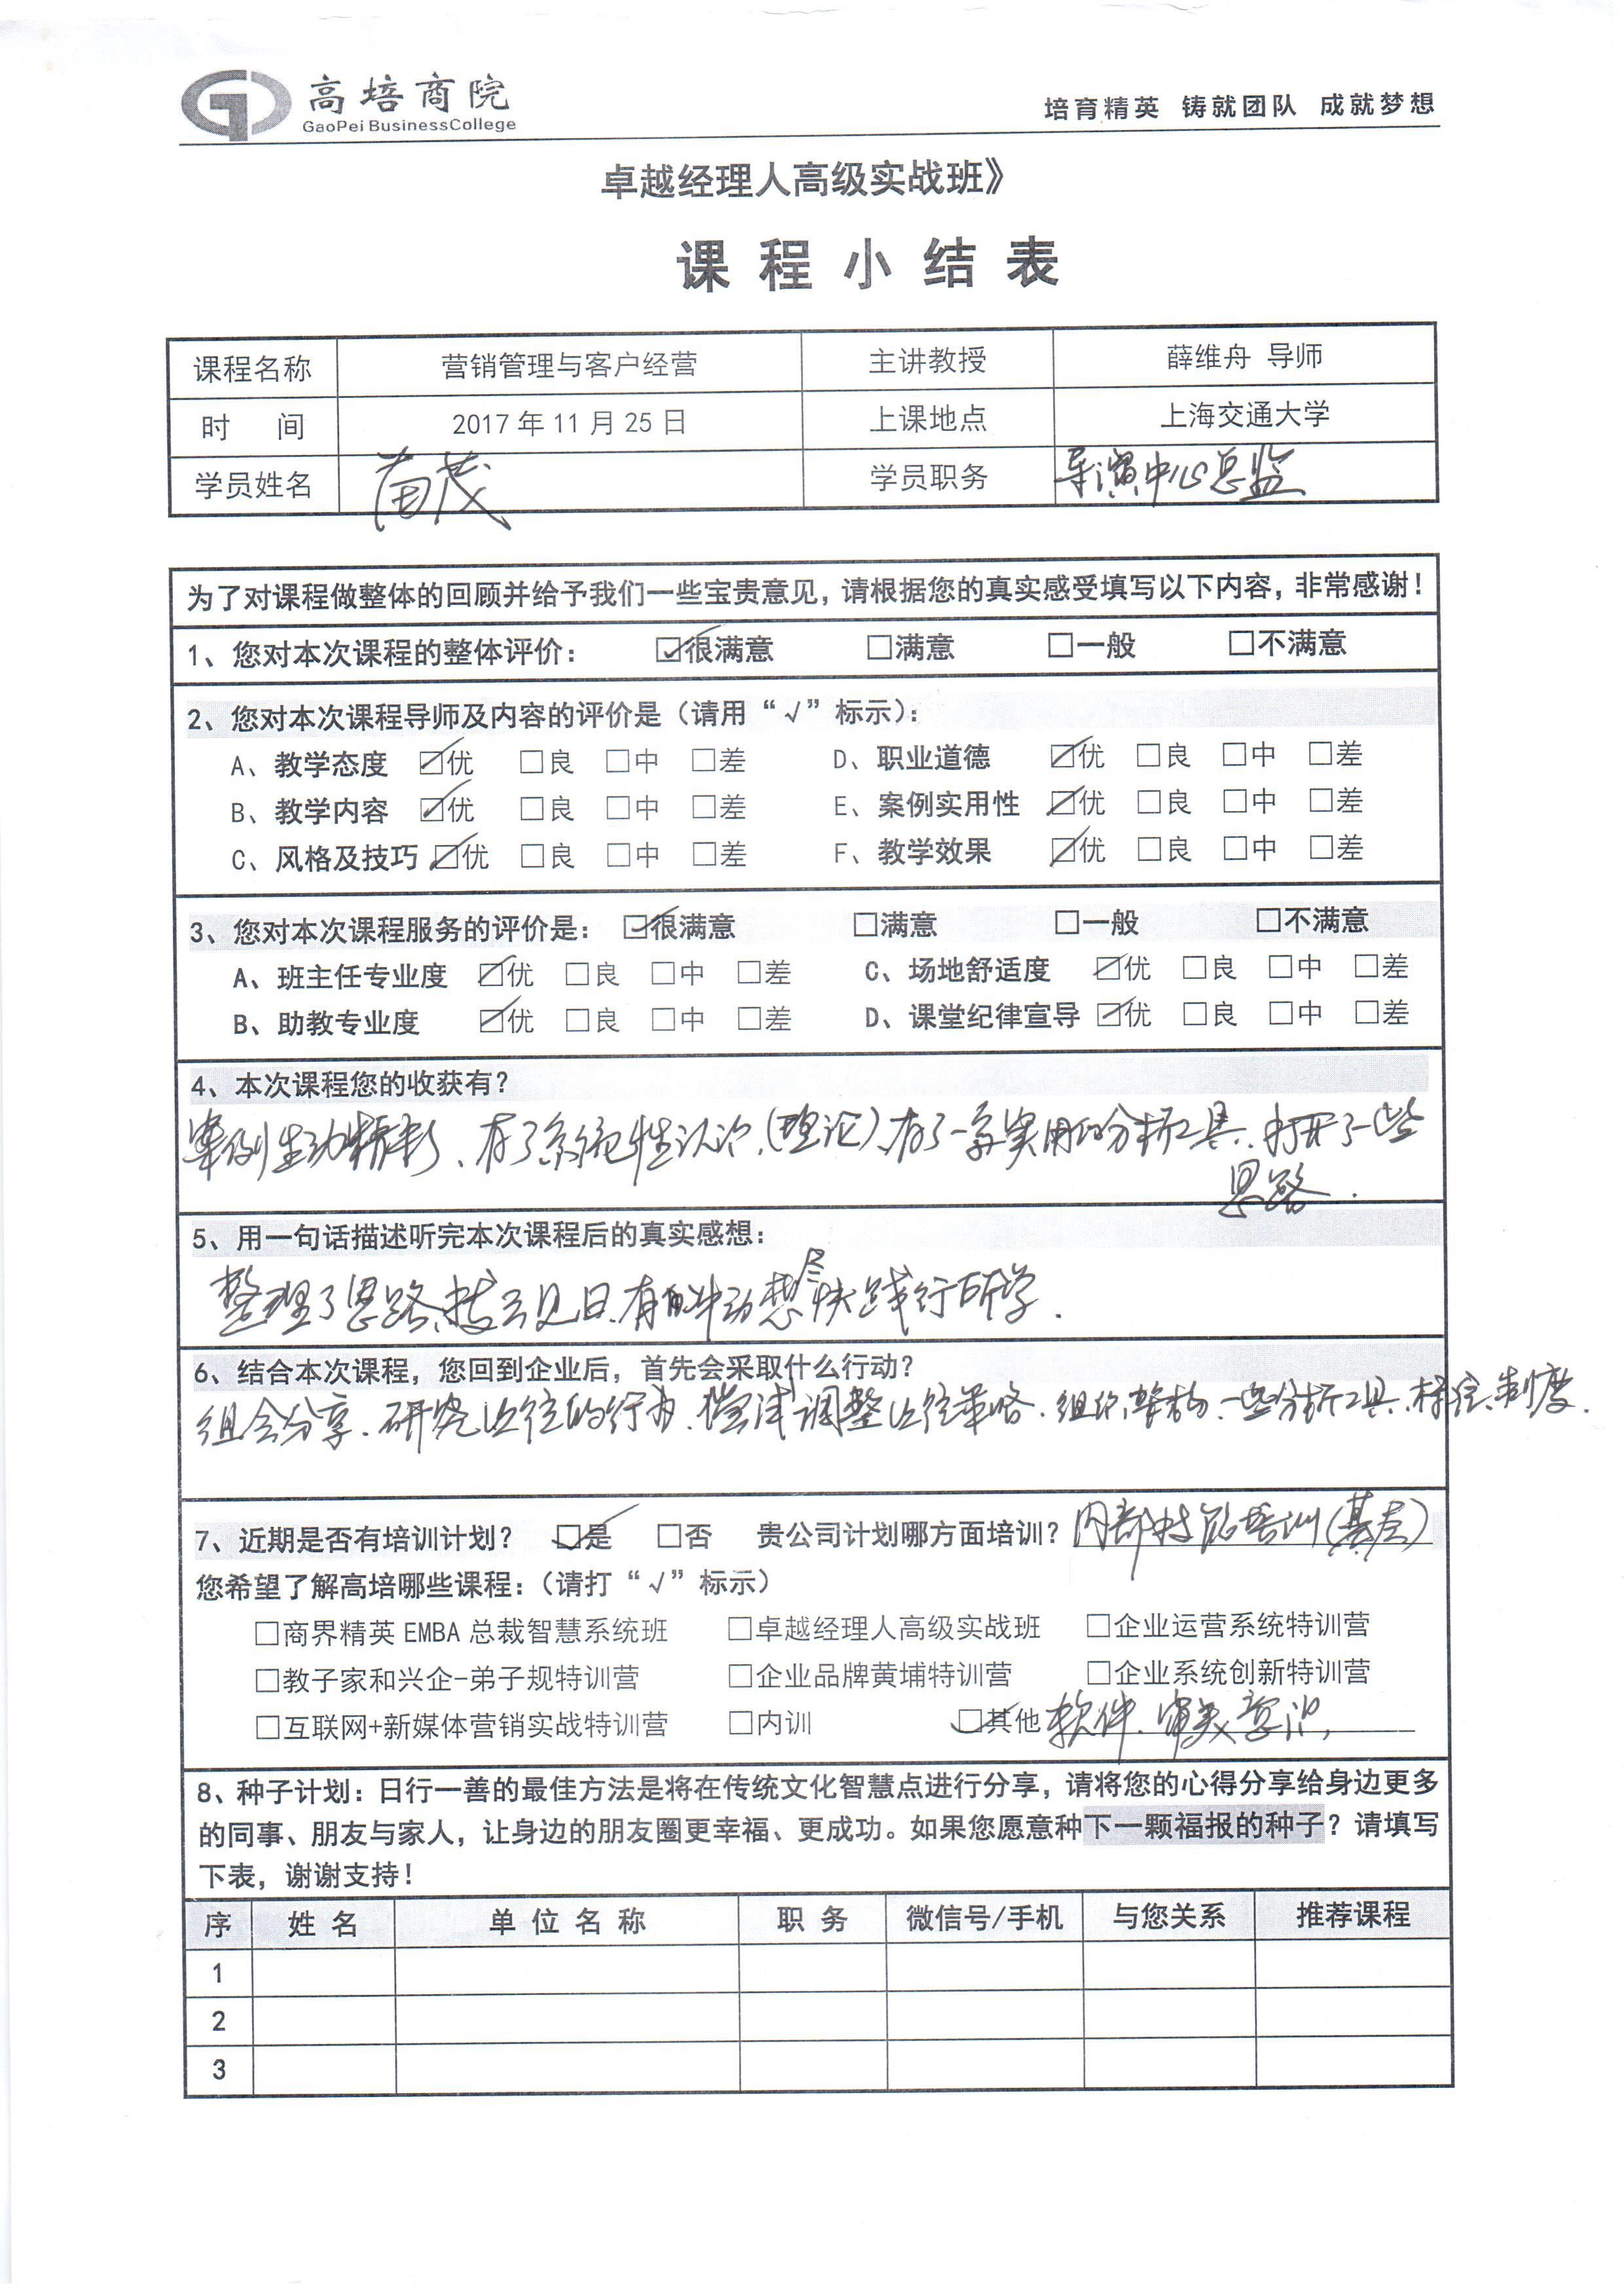 高培商院
GaoPei BusinessCollege
培育精英 铸就团队 成就梦想
卓越经理人高级实战班》
课程小结表
课程名称 营销管理与客户经营 主讲教授 薛维舟 导师
时 间 2017年11月25日 上课地点 上海交通大学
学员姓名 苗茂 学员职务 导演中心总监
为了对课程做整体的回顾并给予我们一些宝贵意见，请根据您的真实感受填写以下内容，非常感谢！
1、您对本次课程的整体评价： ☑很满意 □满意 □一般 □不满意
2、您对本次课程导师及内容的评价是（请用“√”标示）：
A、教学态度 ☑优 □良 □中 □差 D、职业道德 ☑优 □良 □中 □差
B、教学内容 ☑优 □良 □中 □差 E、案例实用性 ☑优 □良 □中 □差
C、风格及技巧 ☑优 □良 □中 □差 F、教学效果 ☑优 □良 □中 □差
3、您对本次课程服务的评价是： ☑很满意 □满意 □一般 □不满意
A、班主任专业度 ☑优 □良 □中 □差 C、场地舒适度 ☑优 □良 □中 □差
B、助教专业度 ☑优 □良 □中 □差 D、课堂纪律宣导 ☑优 □良 □中 □差
4、本次课程您的收获有？
案例生动精彩、有了系统性认识（理论）、有了一些实用的分析工具、打开了一些
思路．
5、用一句话描述听完本次课程后的真实感想：
整理了思路、拨云见日、有的冲动想尽快践行所学．
6、结合本次课程，您回到企业后，首先会采取什么行动？
组会分享、研究以往的行为、尝试调整以往策略、组织架构、一些分析工具、制度．
7、近期是否有培训计划？ ☑是 □否 贵公司计划哪方面培训？内部技能培训（基层）
您希望了解高培哪些课程：（请打“√”标示）
□商界精英EMBA总裁智慧系统班 □卓越经理人高级实战班 □企业运营系统特训营
□教子家和兴企-弟子规特训营 □企业品牌黄埔特训营 □企业系统创新特训营
□互联网+新媒体营销实战特训营 □内训 ☑其他 软件、审美意识，
8、种子计划：日行一善的最佳方法是将在传统文化智慧点进行分享，请将您的心得分享给身边更多
的同事、朋友与家人，让身边的朋友圈更幸福、更成功。如果您愿意种下一颗福报的种子？请填写
下表，谢谢支持！
序 姓名 单位名称 职务 微信号/手机 与您关系 推荐课程
1
2
3